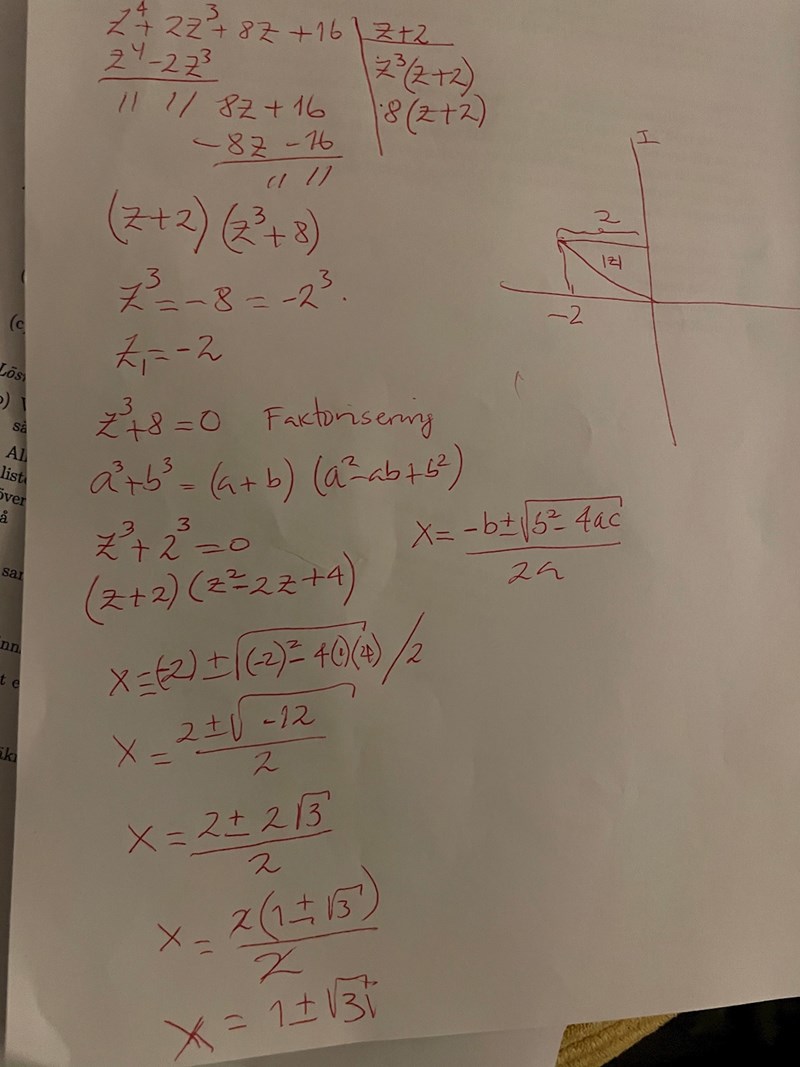 z⁴ + 2z³ + 8z + 16 | z+2
z⁴ - 2z³
z³(z+2)
" " 8z + 16
8(z+2)
-8z - 16
" "
(z+2) (z³+8)
z³ = -8 = -2³.
z₁ = -2
z³+8 = 0 Faktorisering
a³+b³ = (a+b) (a²-ab+b²)
z³ + 2³ = 0
(z+2) (z²-2z+4)
x = (-2) ± √(-2)² - 4(1)(4) / 2
x = 2 ± √-12 / 2
x = 2 ± 2√3 / 2
x = 2(1 ± √3) / 2
x = 1 ± √3i
x = -b ± √b² - 4ac / 2a
I
2
|z|
-2
(c)
Lös